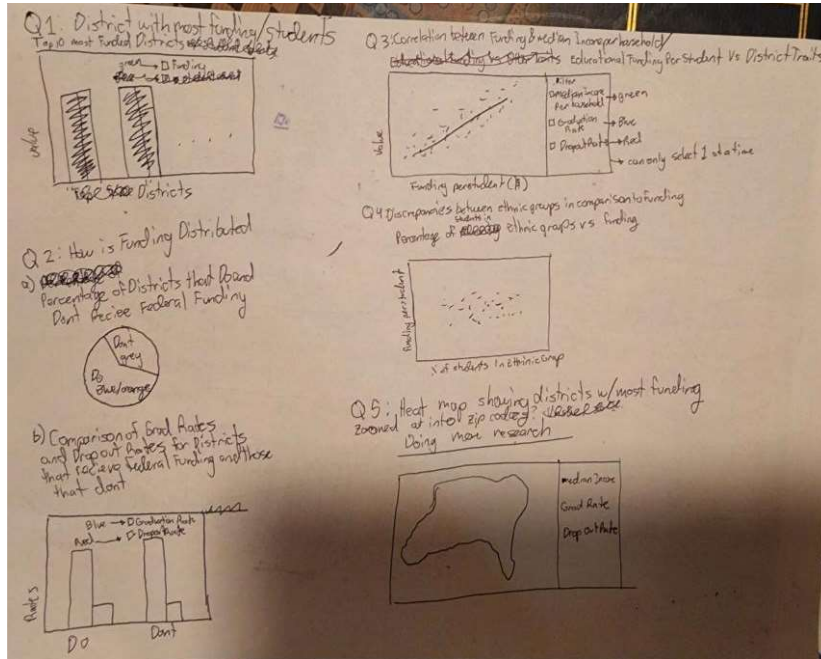 Q1: District with most funding/students
Top 10 most Funded Districts
green → □ Funding
Value
Districts
Q2: How is Funding Distributed
a)
Percentage of Districts that Do and
Dont Recieve Federal Funding
Dont
grey
Do
Blue/orange
b) Comparison of Grad Rates
and Dropout Rates for Districts
that recieve Federal Funding and those
that dont
Blue → □ Graduation Rate
Red → □ Dropout Rate
Rates
DO
Dont
Q3: Correlation between Funding & median Income per household/
Educational Funding Per Student Vs District Traits
Value
Filter
median income
Per household → green
□ Graduation
Rate → Blue
□ Dropout Rate → Red
→ can only select 1 at a time
Funding per student
Q4: Discrepancies between ethnic groups in comparison to funding
students in
Percentage of ethnic groups vs funding
Funding per student
% of students in Ethinic Group
Q5: Heat map showing districts w/most funding
zoomed at into zip codes?
Doing more research
median Income
Grad Rate
Drop Out Rate